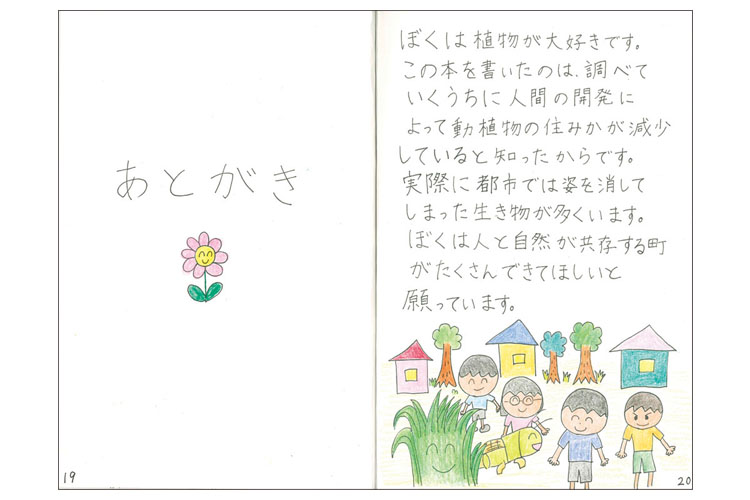 あとがき
19
ぼくは植物が大好きです。
この本を書いたのは、調べて
いくうちに人間の開発に
よって動植物の住みかが減少
していると知ったからです。
実際に都市では姿を消して
しまった生き物が多くいます。
ぼくは人と自然が共存する町
がたくさんできてほしいと
願っています。
20